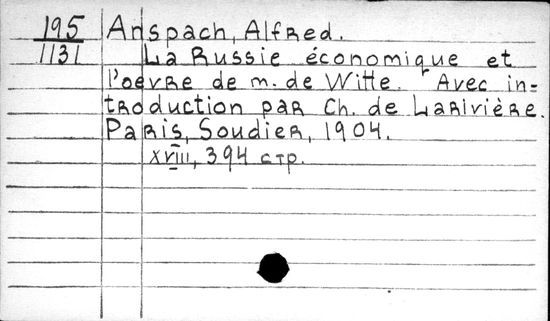 195 Anspach, Alfred.
1131 La Russie économique et
l'oevre de m. de Witte. Avec in=
troduction par Ch. de Larivière.
Paris, Soudier, 1904.
XVIII, 394 стр.